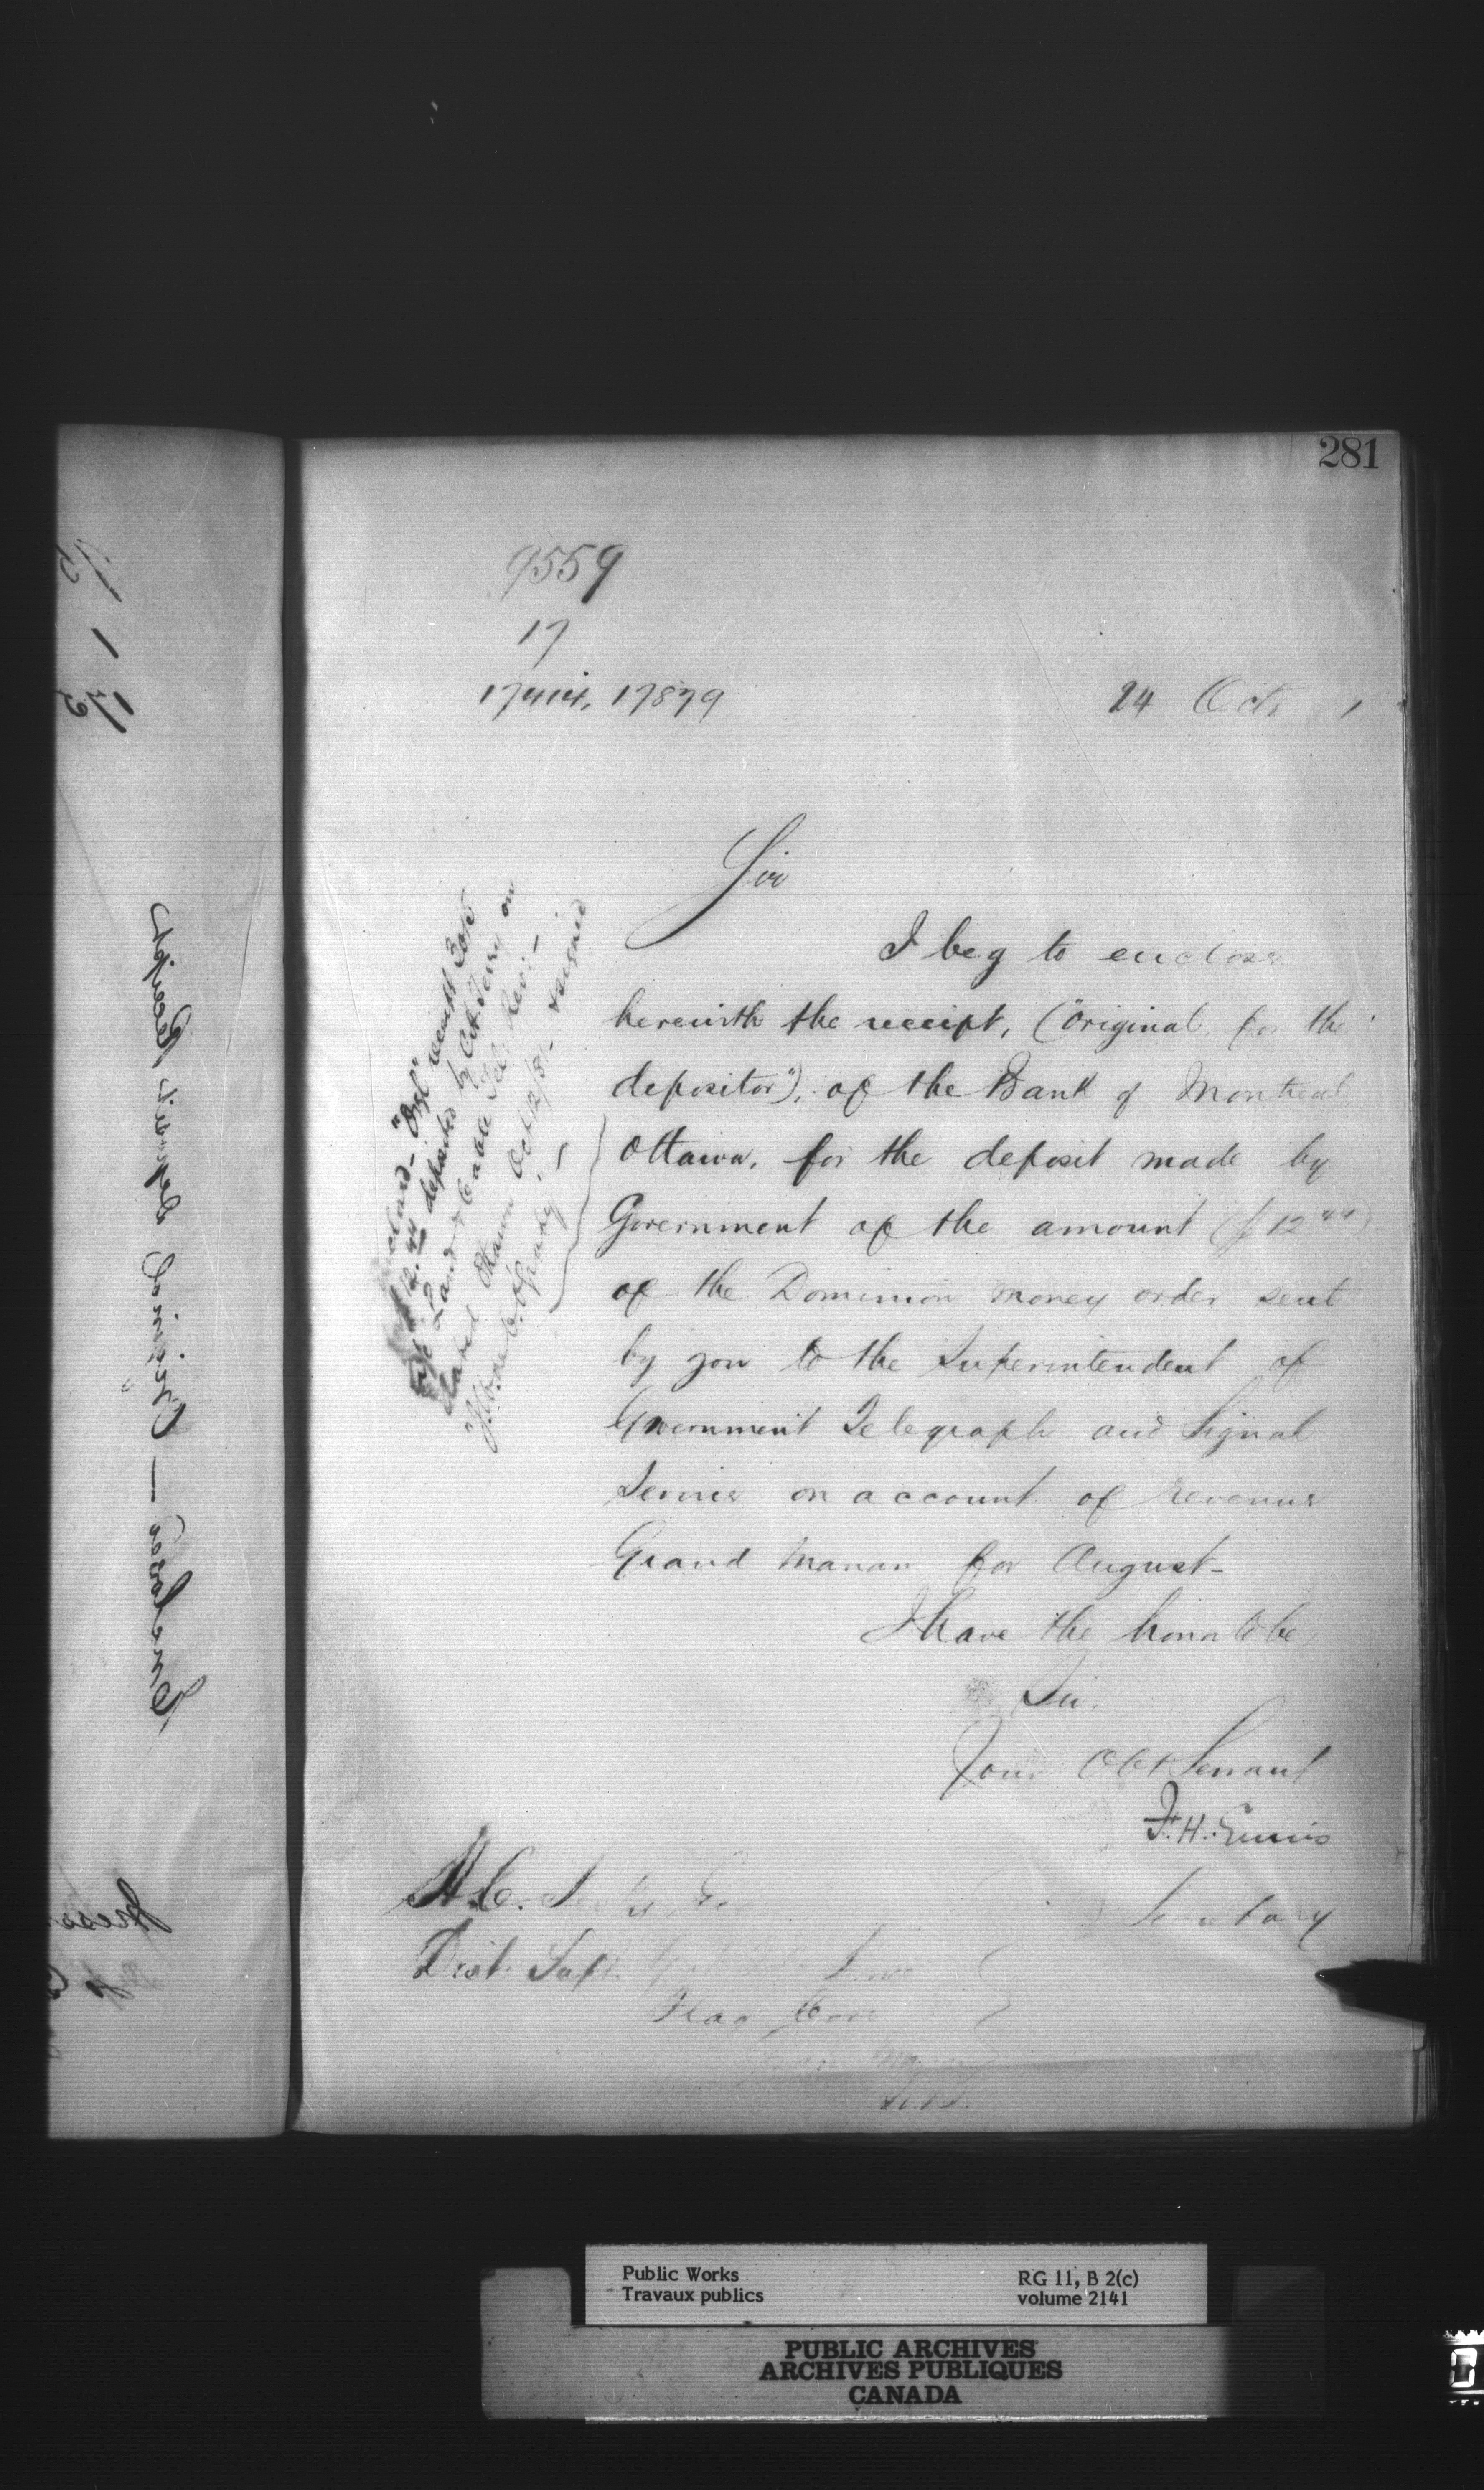 281
9559
17
17414, 17879
24 Oct. 1
Sir
I beg to enclose
herewith the receipt, ("Original for the
depositor"), of the Bank of Montreal,
Ottawa, for the deposit made by
Government of the amount ($12 44)
of the Dominion money order sent
by you to the Superintendent of
Government Telegraph and Signal
Service on account of revenue
Grand Manan for August-
I have the honor to be
Sir.
Your Obt Servant
F. H. Ennis
Secretary
Dist. Supt.
Flag Cove
N.B.
"Orgl" receipt
12.44 deposited by
Land & Cable Tel. Rev. -
dated Ottawa Oct 12/81 - & signed
Enclose — Original deposit Receipt
Public Works
Travaux publics
RG 11, B 2(c)
volume 2141
PUBLIC ARCHIVES
ARCHIVES PUBLIQUES
CANADA